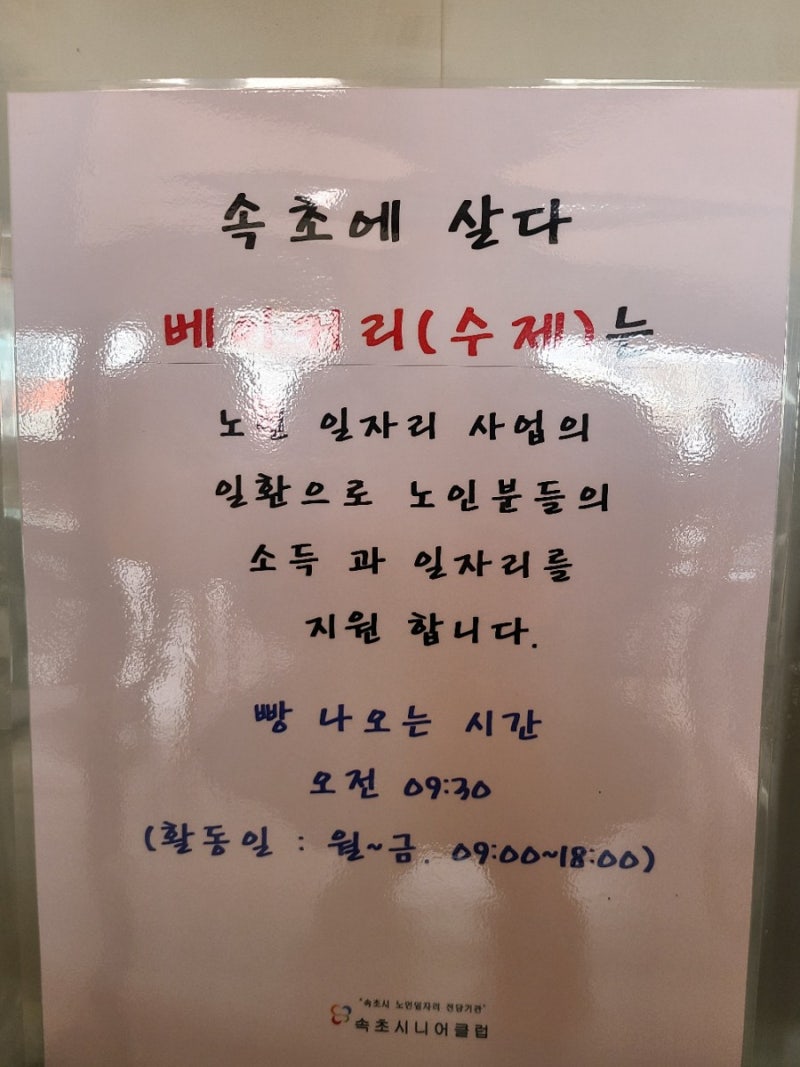 속초에 살다
베이커리(수제)는
노인 일자리 사업의
일환으로 노인분들의
소득 과 일자리를
지원 합니다.
빵 나오는 시간
오전 09:30
(활동일 : 월~금. 09:00~18:00)
"속초시 노인일자리 전담기관"
속초시니어클럽